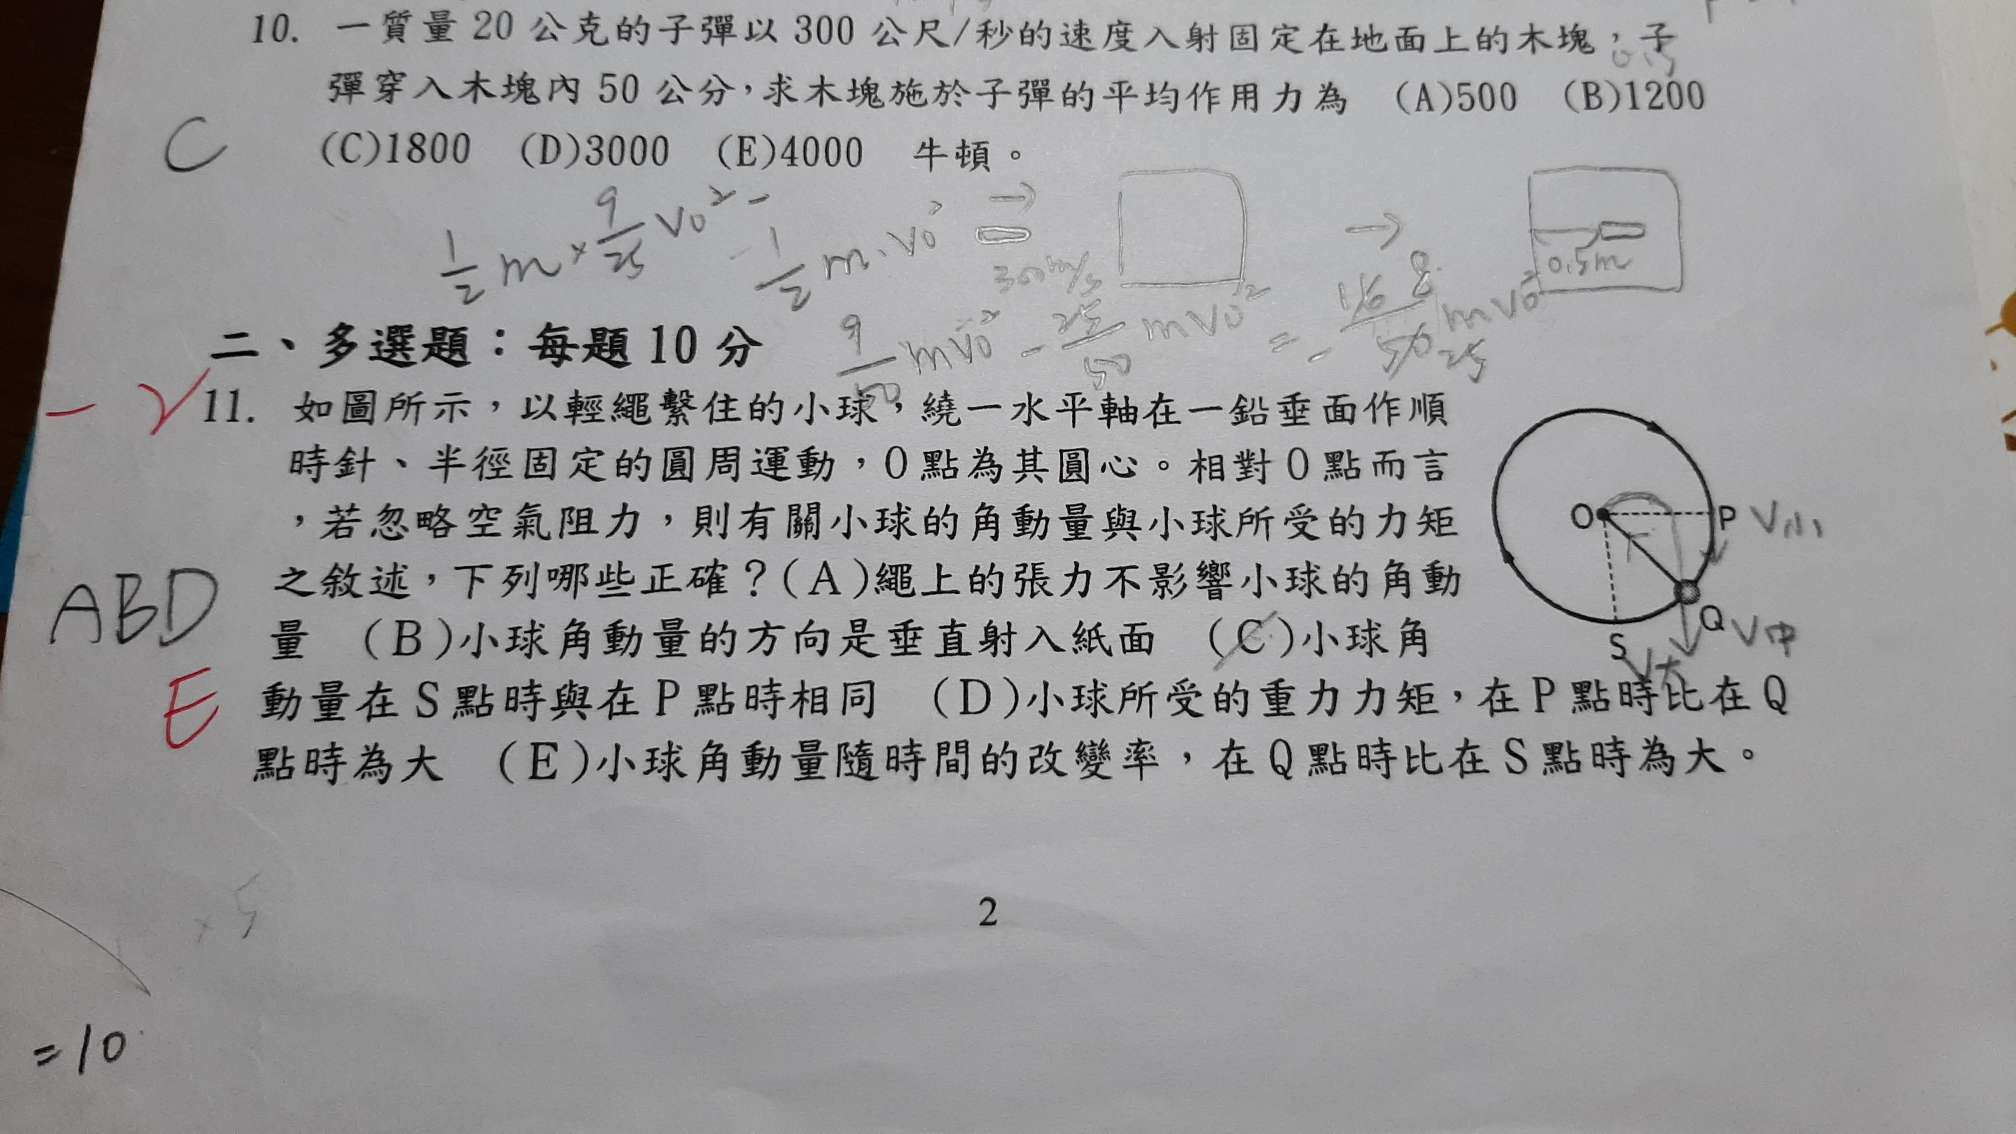 10. 一質量 20 公克的子彈以 300 公尺/秒的速度入射固定在地面上的木塊，子
0.5
彈穿入木塊內 50 公分，求木塊施於子彈的平均作用力為 (A)500 (B)1200
C (C)1800 (D)3000 (E)4000 牛頓。
1/2 m × 9/25 v0² - 1/2 m · v0²
300 m/s
0.5m
二、多選題：每題 10 分
9/50 mv0² - 25/50 mv0² = - 16/50 8/25 mv0²
-2
11. 如圖所示，以輕繩繫住的小球，繞一水平軸在一鉛垂面作順
時針、半徑固定的圓周運動，O 點為其圓心。相對 O 點而言
，若忽略空氣阻力，則有關小球的角動量與小球所受的力矩
之敘述，下列哪些正確？(A)繩上的張力不影響小球的角動
量 (B)小球角動量的方向是垂直射入紙面 (C)小球角
動量在 S 點時與在 P 點時相同 (D)小球所受的重力力矩，在 P 點時比在 Q
點時為大 (E)小球角動量隨時間的改變率，在 Q 點時比在 S 點時為大。
ABD
E
O
P V小
Q V中
S V大
×5
2
=10